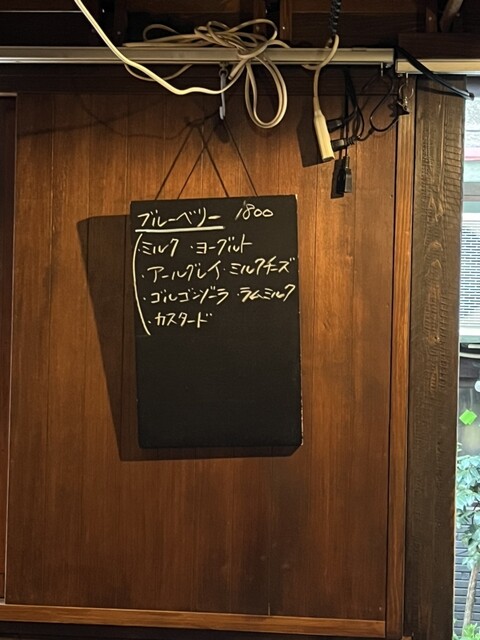 ブルーベリー 1800
・ミルク ・ヨーグルト
・アールグレイ・ミルクチーズ
・ゴルゴンゾーラ ・ラムミルク
・カスタード